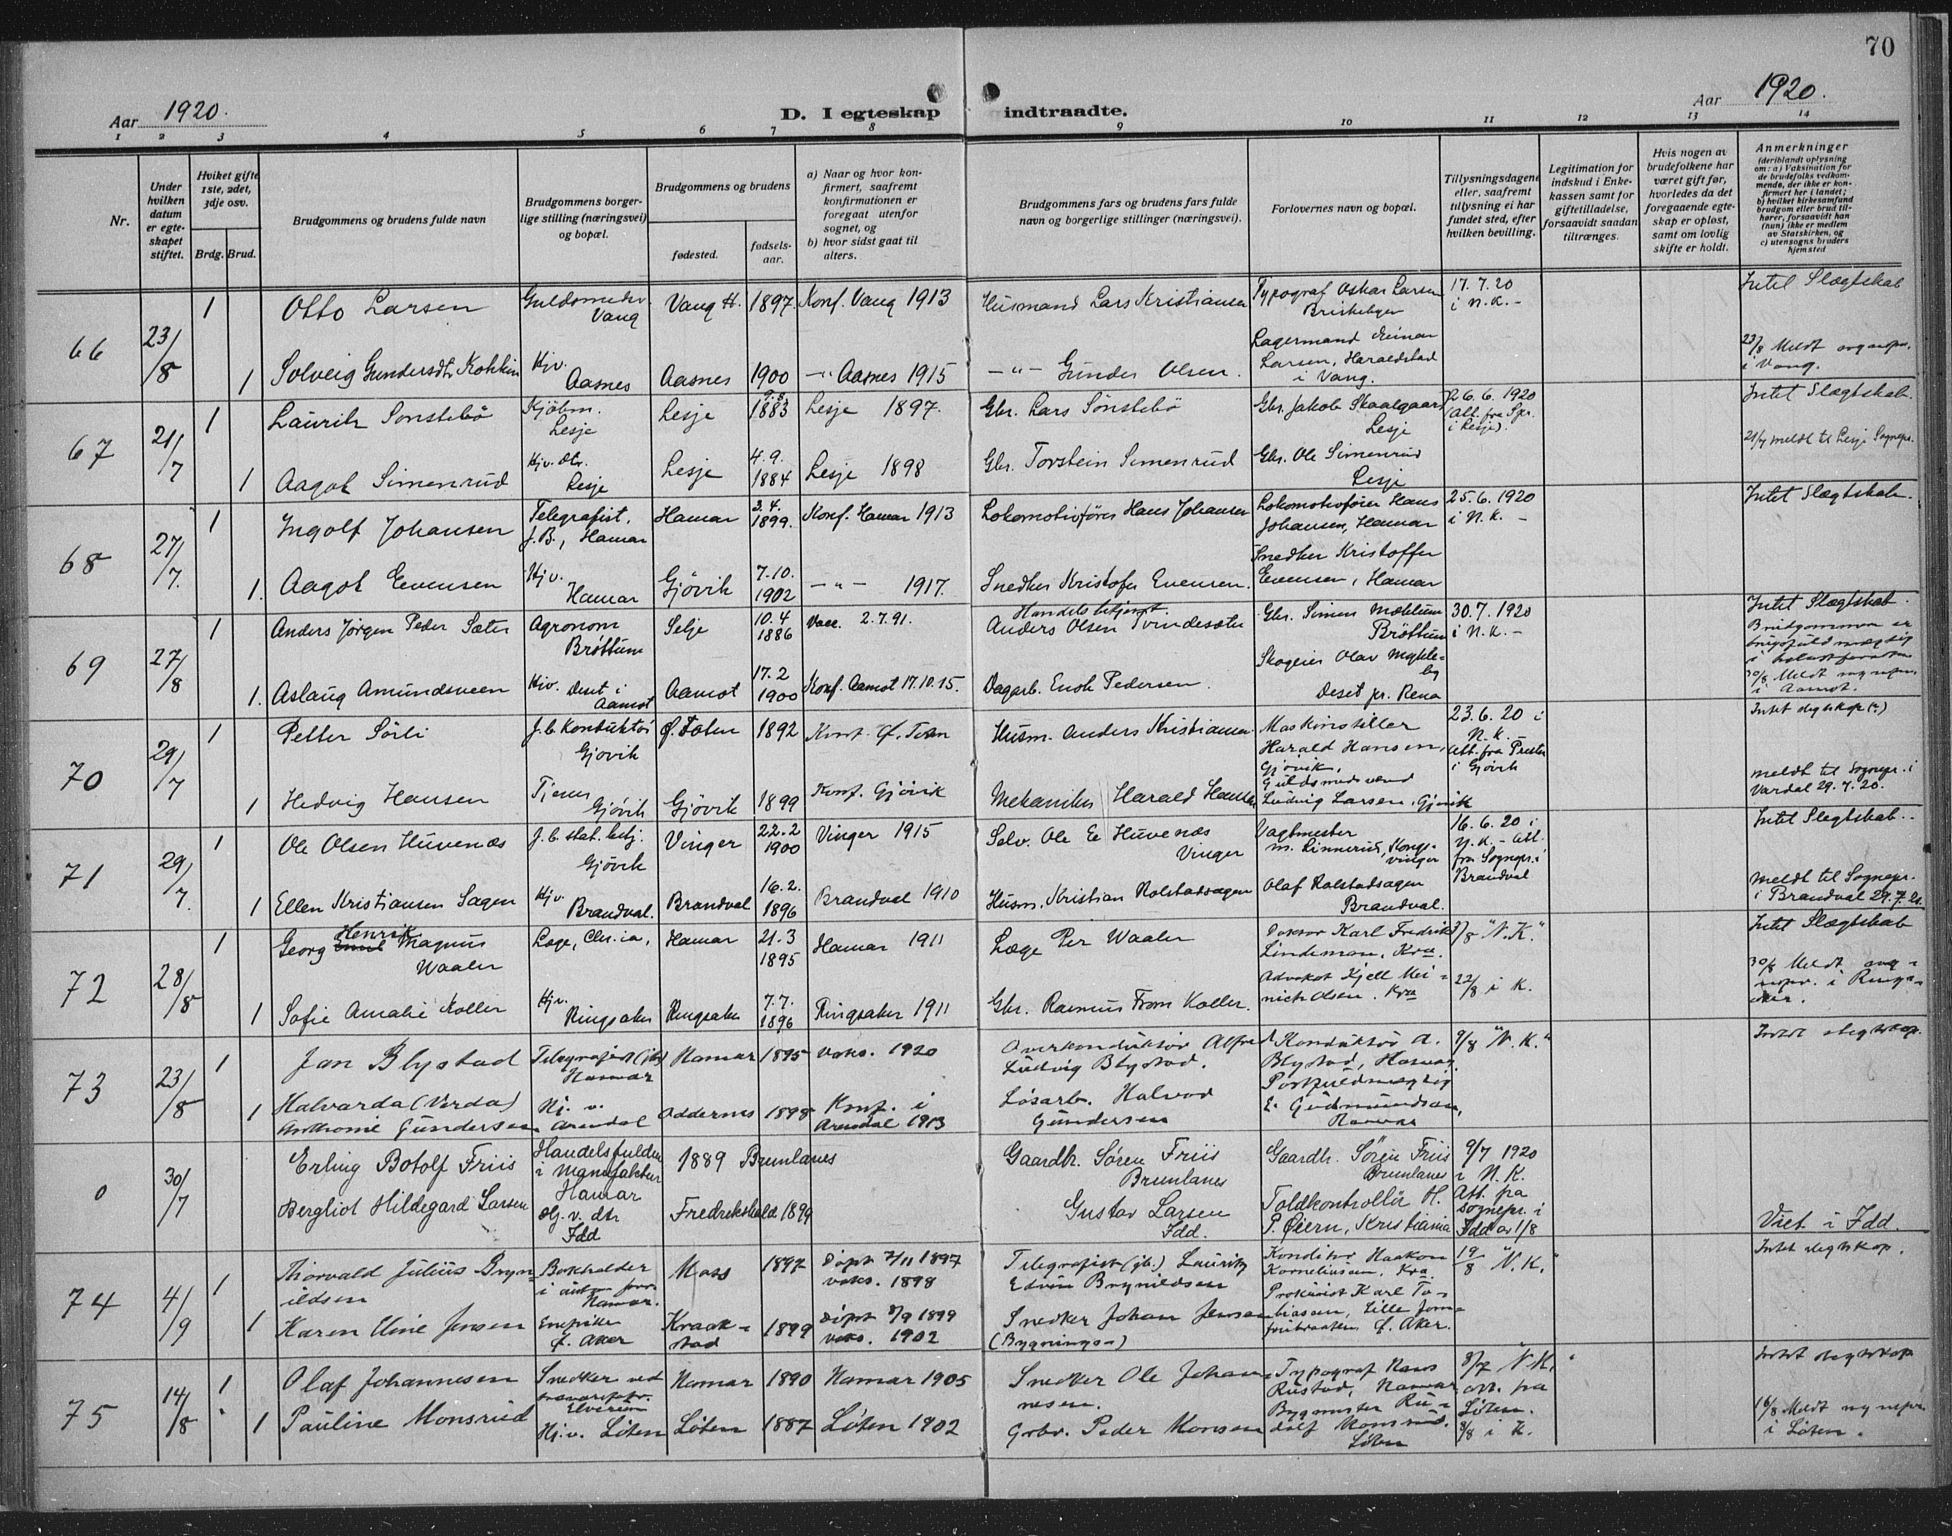 70
Aar 1920.
D. I egteskap indtraadte.
Aar 1920.
1 2 3 4 5 6 7 8 9 10 11 12 13 14
Nr.
Under hvilken datum er egteskapet stiftet.
Hviket gifte 1ste, 2det, 3dje osv.
Brdg. Brud.
Brudgommens og brudens fulde navn
Brudgommens borgerlige stilling (næringsvei) og bopæl.
Brudgommens og brudens
fødested.
fødselsaar.
a) Naar og hvor konfirmert, saafremt konfirmationen er foregaat utenfor sognet, og
b) hvor sidst gaat til alters.
Brudgommens fars og brudens fars fulde navn og borgerlige stillinger (næringsvei).
Forlovernes navn og bopæl.
Tillysningsdagene eller, saafremt tillysning ei har fundet sted, efter hvilken bevilling.
Legitimation for indskud i Enkekassen samt for giftetilladelse, forsaavidt saadan tiltrænges.
Hvis nogen av brudefolkene har været gift før, hvorledes da det foregaaende egteskap er opløst, samt om lovlig skifte er holdt.
Anmerkninger
(deriblandt oplysning om: a) Vaksination for de brudefolks vedkommende, der ikke er konfirmert her i landet; b) hvilket kirkesamfund brudgom eller brud tilhører, forsaavidt han (hun) ikke er medlem av Statskirken, og c) utensogns bruders hjemsted
66 23/8 1 Otto Larsen Guldsmedsv. Vang Vang H. 1897 Konf. Vang 1913 Husmand Lars Kristiansen Typograf Oskar Larsen Briskebyen 17.7.20 i N.K. - Intet Slægtskab
1 Solveig Gundersdtr. Kohkin Hjv. Aasnes Aasnes 1900 -"- Aasnes 1915 -"- Gunder Olsen. Lagermand Einar Larsen, Haraldstad i Vang. 23/8 Meldt sognepr. i Vang.
67 21/7 1 Laurits Sønstebø Kjøbm. Lesje Lesje 1883 Lesje 1897. Gbr. Lars Sønstebø Gbr. Jakob Skaalgaard Lesje 26.6.1920 (Att. fra Spr. i Lesje). Intet Slægtskab.
1 Aagot Simenrud Hjv. dtr. Lesje Lesje 4.9. 1884 Lesje 1898 Gbr. Torstein Simenrud Gbr. Ole Simenrud Lesje 21/7 meldt til Lesje Sognepr.
68 27/7. 1 Ingolf Johansen Telegrafist, J.B., Hamar Hamar 3.4. 1899. Konf. Hamar 1913 Lokomotivfører Hans Johansen Lokomotivfører Hans Johansen, Hamar 25.6.1920 i N.K. - Intet Slægtskab.
1. Aagot Evensen Hjv. Hamar Gjøvik 7.10. 1902 -"- 1917. Snedker Kristofer Evensen. Snedker Kristoffer Evensen, Hamar
69 27/8 1 Anders Jørgen Peder Sæter Agronom Brøttum Selje 10.4 1886 Vacc. 2.7.91. Handelsbetjent Anders Olsen Tvindesæter Gbr. Simen Mæhlum Brøttum 30.7.1920 i N.K. - Intet Slægtskab. Brudgommen er
1. Aslaug Amundsveen Hjv. Deset i Aamot Aamot 17.2 1900 Konf. Aamot 17.10.15. Dagarb. Enok Pedersen. Skogeier Olav Mykleby Deset pr. Rena 30/8 Meldt sognepr. i Aamot.
70 29/7 1 Petter Sørli J.b. Konduktør Gjøvik Ø. Toten 1892 Konf. Ø. Toten Husm. Anders Kristiansen Maskinstiller Harald Hansen, Gjøvik, 23.6.20 i N.K. - Att. fra Presten i Gjøvik Intet slegtskap (?)
1 Hedvig Hansen Tjener Gjøvik Gjøvik 1899 Konf. Gjøvik Mekaniker Harald Hansen Guldsmedsvend Ludvig Larsen, Gjøvik meldt til Sognepr. i Vardal 29.7.20.
71 29/7. 1 Ole Olsen Huvenæs J.b. stat. betj. Gjøvik Vinger 22.2 1900 Vinger 1915 Selv. Ole E. Huvenæs Vinger Vagtmester M. Linnerud, Kongsvinger 16.6.20 i N.K. - Att. fra Sognepr. i Brandval Intet Slegtskab.
1 Ellen Kristiansen Sagen Hjv. Brandval. Brandval 16.2. 1896 Brandval 1910 Husm. Kristian Rolstadsagen Olaf Rolstadsagen Brandval. meldt til Sognepr. i Brandval 29.7.20.
72 28/8 1 Georg Henrik Magnus Waaler Læge, Chr.ia, Hamar 21.3 1895 Hamar 1911 Læge Per Waaler Doktor Karl Fredrik Lindeman, Kra. 8/8 "N.K." Intet Slægtskab
1 Sofie Amalie Koller Hjv. Ringsaker Ringsaker 7.7. 1896 Ringsaker 1911 Gbr. Rasmus From Koller. Advokat Kjell Meinich Olsen. Kra 22/8 i K. 30/8 Meldt sognepr. i Ringsaker.
73 23/8 1 Jan Blystad Telegrafist (jb) Hamar Hamar 1895 vaks. 1920 Overkonduktør Alfred Ludvig Blystad. Konduktør A. Blystad, Hamar. 9/8 "N.K." Intet slegtskap.
1 Halvarda (Verda) Gundersen Hj. v. Arendal Oddernes 1898 Konf. i Arendal 1913 Løsarb. Halvor Gundersen Postfuldmægtig E. Gudmundsen, Hamar
0 30/7 Erling Botolf Friis Handelsfuldm. i Manufaktur Hamar 1889 Brunlanes Gaardbr. Søren Friis Brunlanes Gaardbr. Søren Friis Brunlanes 9/7 1920 i N.K.
Bergliot Hildegard Larsen Hj. v. dtr Idd Fredrikshald 1899 Gustav Larsen Idd. Toldkontrollør H. P. Øiern, Kristiania Att. fra sognepr. i Idd av 1/8 Viet i Idd.
74 4/9 1 Thorvald Julius Brynildsen Bokholder Hamar. Moss 1897 Døpt 7/11 1897 vaks. 1898 Telegrafist (jb.) Lauritz Edvin Brynildsen Konditor Haakon Korneliussen, Kra. 19/8 "N.K." Intet slegtskap.
1 Karen Eline Jensen Ø. Aker Kraakstad 1899 Døpt 3/9 1899 vaks. 1902 Snedker Johan Jensen (Bygnings-) Prokurist Karl Tobiassen, Ø. Aker.
75 14/8 1 Olaf Johannesen Snedker ved Elverum Hamar 1890 Hamar 1905 Snedker Ole Johannesen. Typograf Hans Rustad, Hamar 8/7 N.K. att. fra Løten. Intet slegtskap
1 Pauline Monsrud Hj.v. Løten Løten 1887 Løten 1902 Grbr. Peder Monsen Bygmester Rudolf Monsrud. Løten 8/8 i K. 16/8 Meldt sognepr. i Løten.